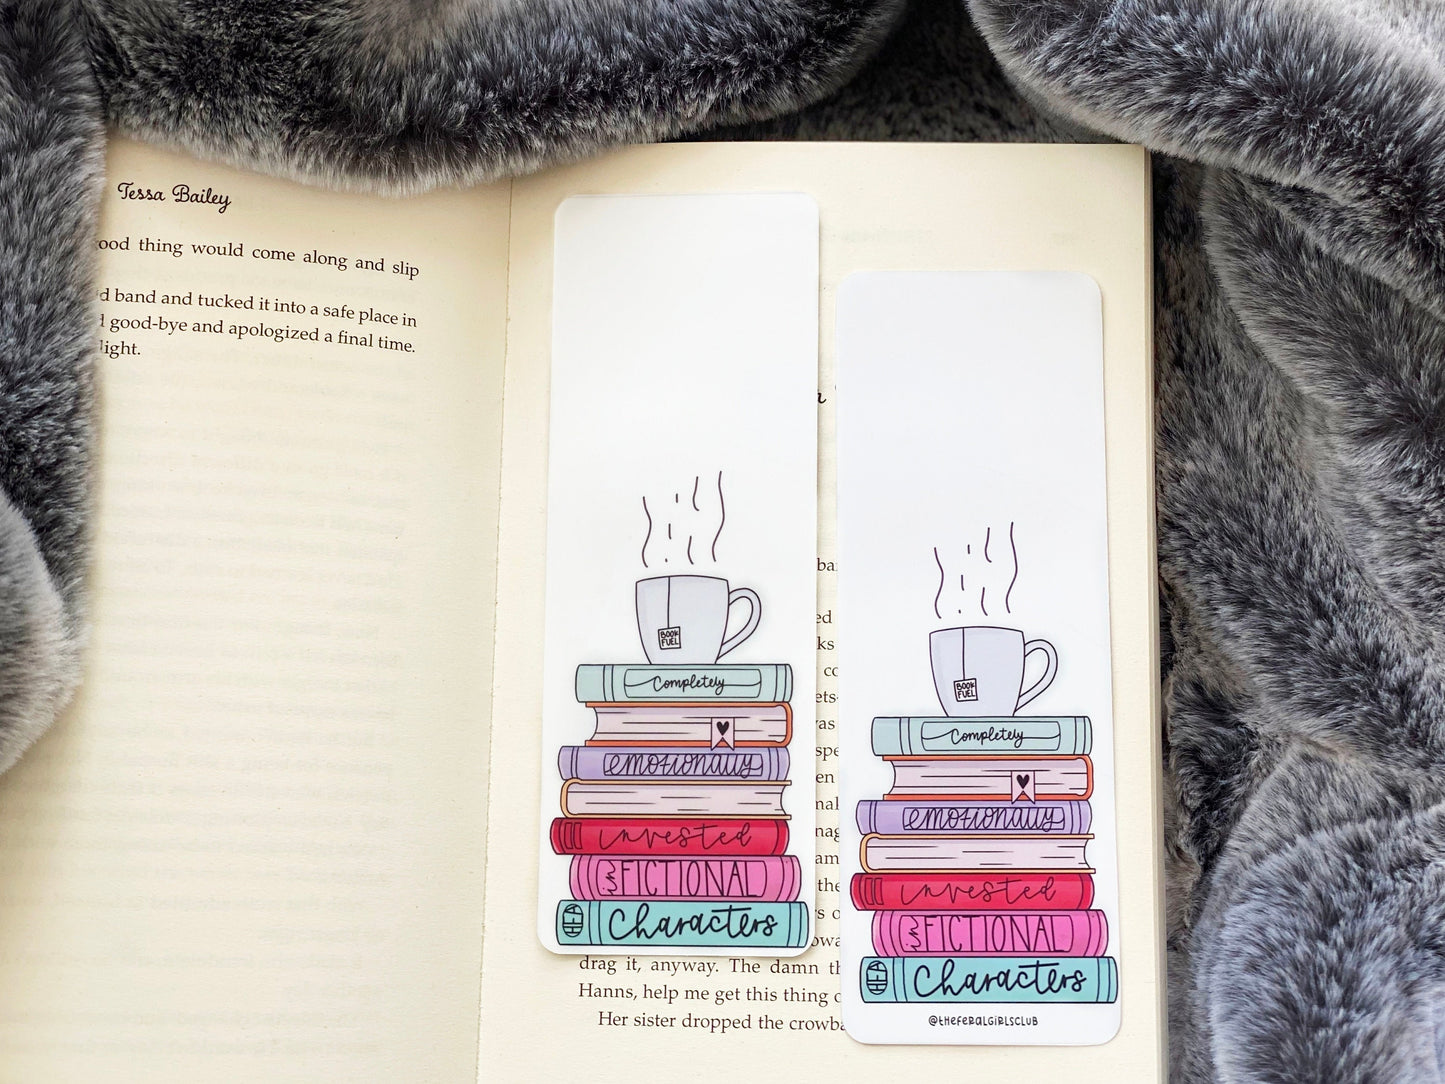 Tessa Bailey
ood thing would come along and slip
d band and tucked it into a safe place in
good-bye and apologized a final time.
light.
BOOK
FUEL
Completely
emotionally
invested
in FICTIONAL
Characters
drag it, anyway. The damn th
Hanns, help me get this thing o
Her sister dropped the crowba
BOOK
FUEL
Completely
emotionally
invested
in FICTIONAL
Characters
@THEFERALGIRLSCLUB